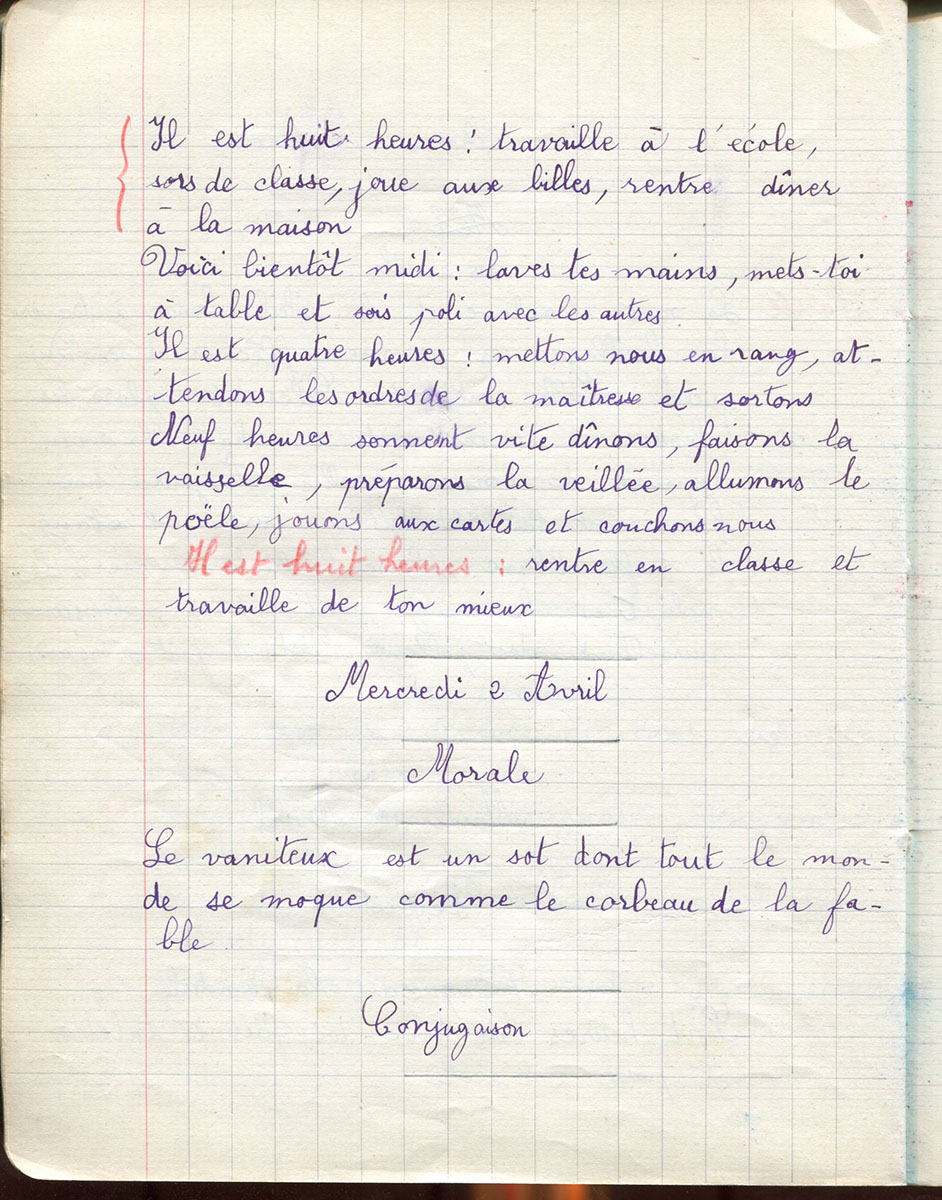 Il est huit heures : travaille à l'école,
sors de classe, joue aux billes, rentre dîner
à la maison
Voici bientôt midi : laves tes mains, mets-toi
à table et sois poli avec les autres
Il est quatre heures : mettons nous en rang, at-
tendons les ordres de la maîtresse et sortons
Neuf heures sonnent vite dînons, faisons la
vaisselle, préparons la veillée, allumons le
poële, jouons aux cartes et couchons nous
Il est huit heures : rentre en classe et
travaille de ton mieux
Mercredi 2 Avril
Morale
Le vaniteux est un sot dont tout le mon-
de se moque comme le corbeau de la fa-
ble
Conjugaison